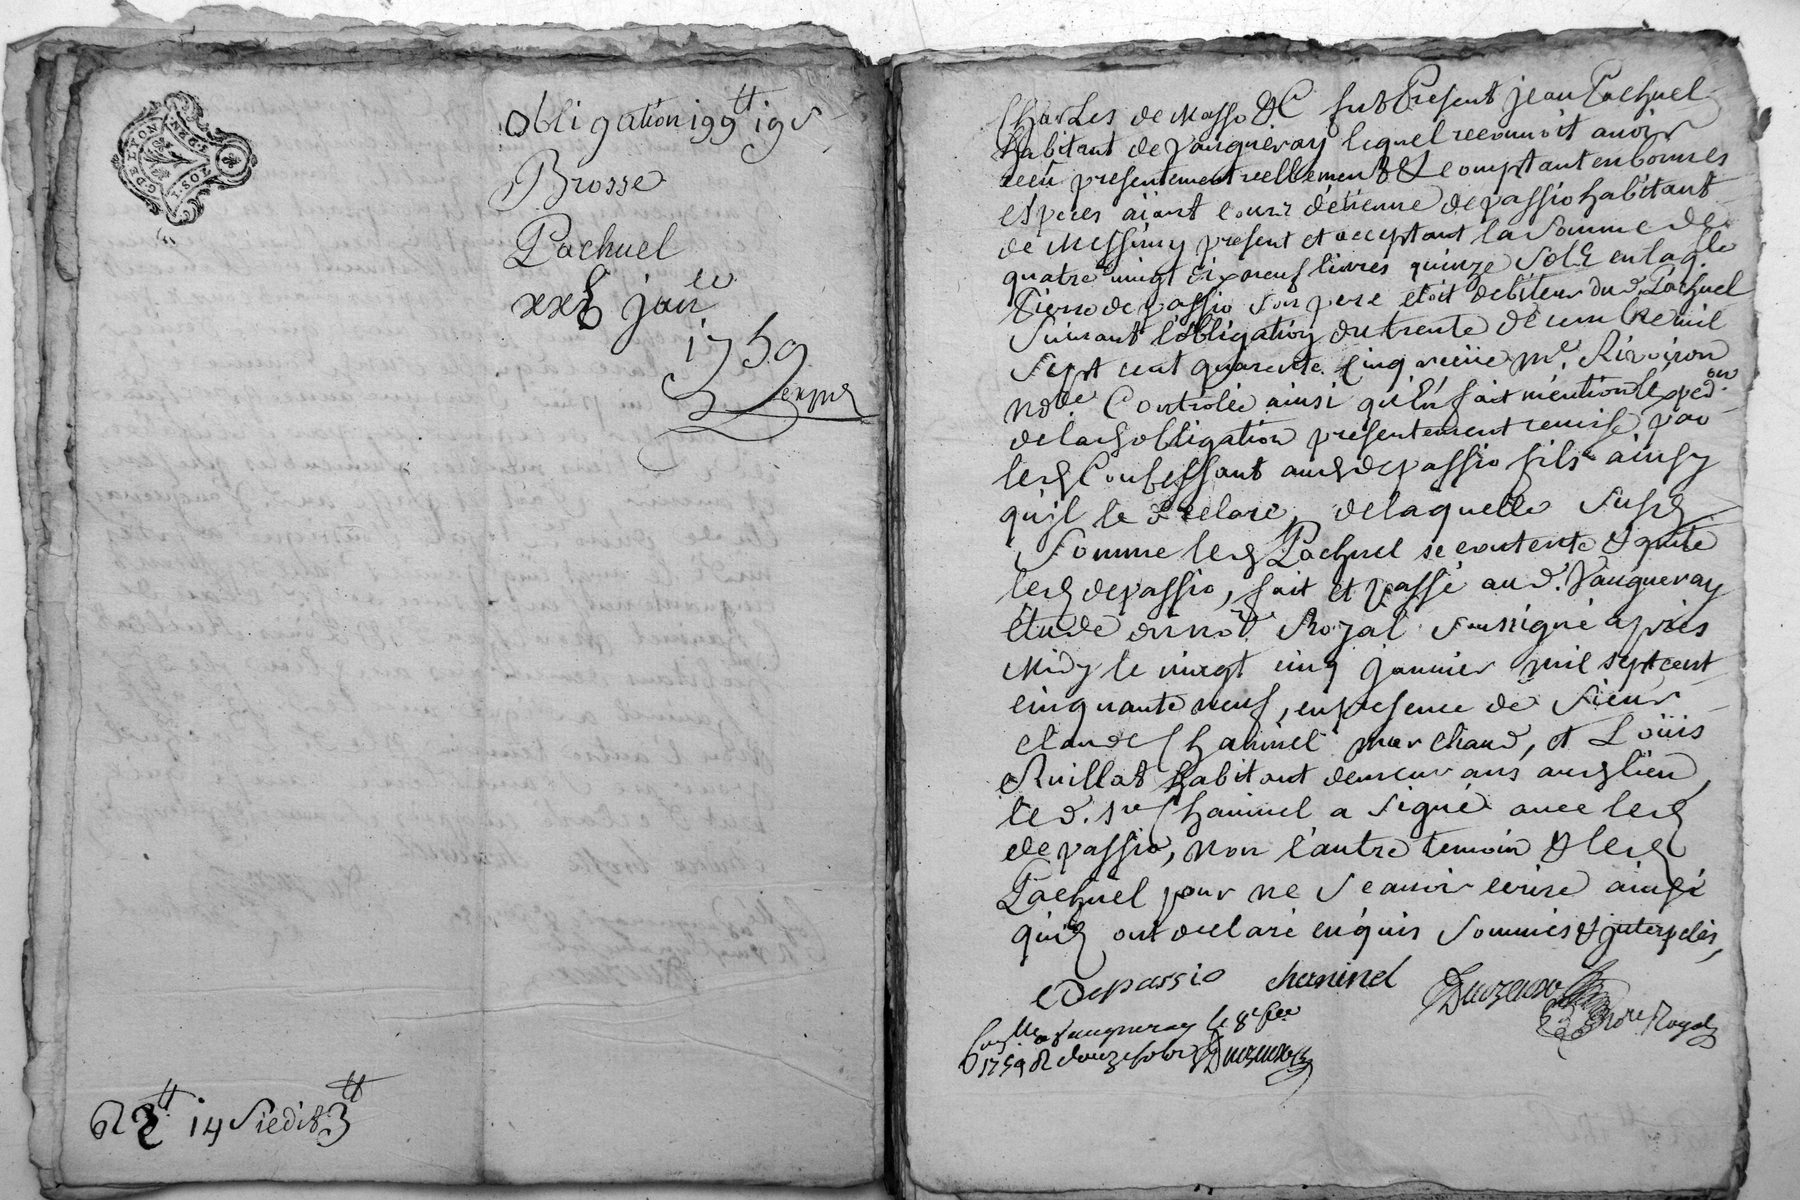 GDE LYON
Obligation 199tt 19s
Brosse
Pachuel
xx5 jan.er
1759
Rtt 14s iedit 3tt
Charles de Masso &c fut Present jean Pachuel
habitant de Vaugneray lequel reconnoit avoir
receu presentement reellement & comptant en bonnes
especes aiant cours d'étienne depassio habitant
de Messimy present et acceptant la somme de
quatre vingt dixneuf livres quinze sols en laqlle
Pierre depassio son pere etoit debiteur du d. Pachuel
suivant l'obligation du trente décembre mil
sept cent quarente cinq receüe me. Rivoiron
nore Controlée ainsi qu'il en fait mention l'expedon
de lad obligation presentement remise par
led Confessant aud depassio fils ainsy
qu'il le declare, de laquelle susd
somme led Pachuel se contente & quitte
led depassio, fait et passé au d. Vaugneray
étude du nore Royal soussigné après
Midy le vingt cinq janvier mil sept cent
cinquante neuf, en presence de sieur
claude Chaminel marchand, et Loüis
Ruillat habitant demeurans aud lieu,
le d. sr Chaminel a signé avec led
depassio, non l'autre temoin & led
Pachuel pour ne scavoir ecrire ainsi
qu'ils ont declaré enquis sommés & interpelés,
Depassio cheminel nore Royal
Conllé a Vaugneray le 8e fer
1759 R douze sols